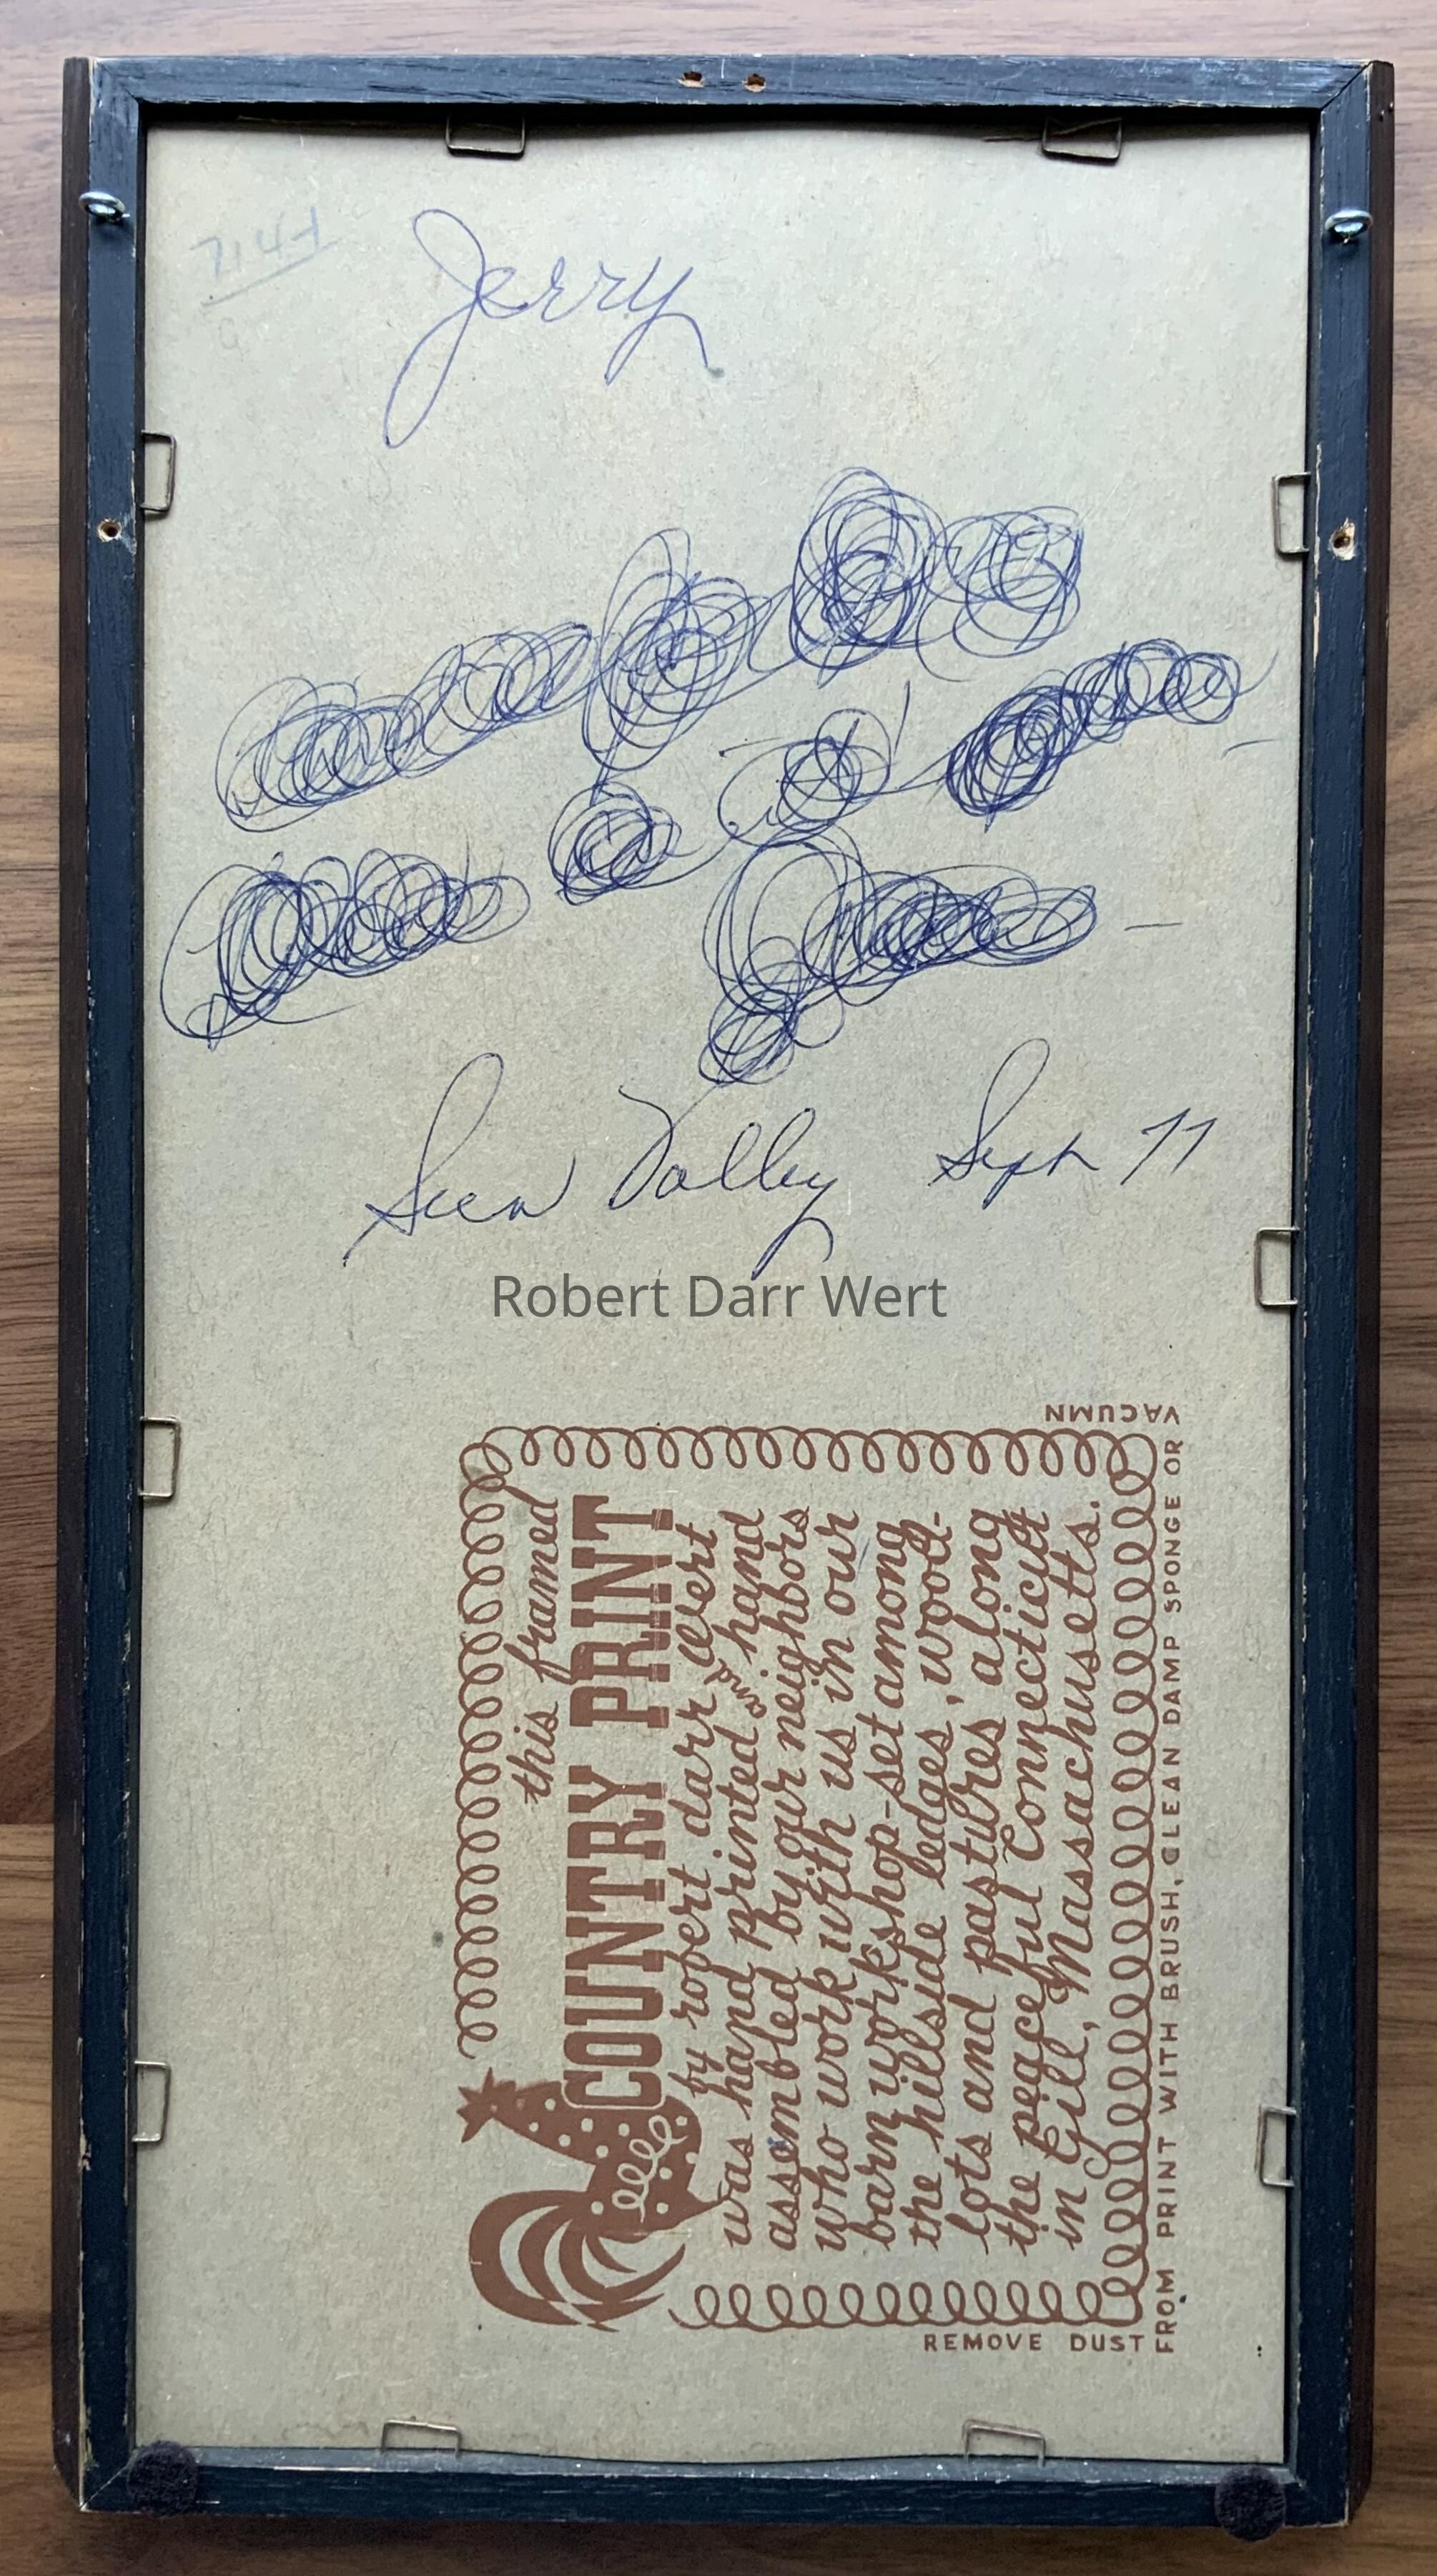 Jerry
Sun Valley Sept 77
Robert Darr Wert
this framed
COUNTRY PRINT
by robert darr wert
was hand printed and hand
assembled by our neighbors
who work with us in our
barn workshop-set among
the hillside ledges, wood-
lots and pastures along
the peaceful Connecticut
in Gill, Massachusetts.
REMOVE DUST
FROM PRINT WITH BRUSH, CLEAN DAMP SPONGE OR
VACUMN